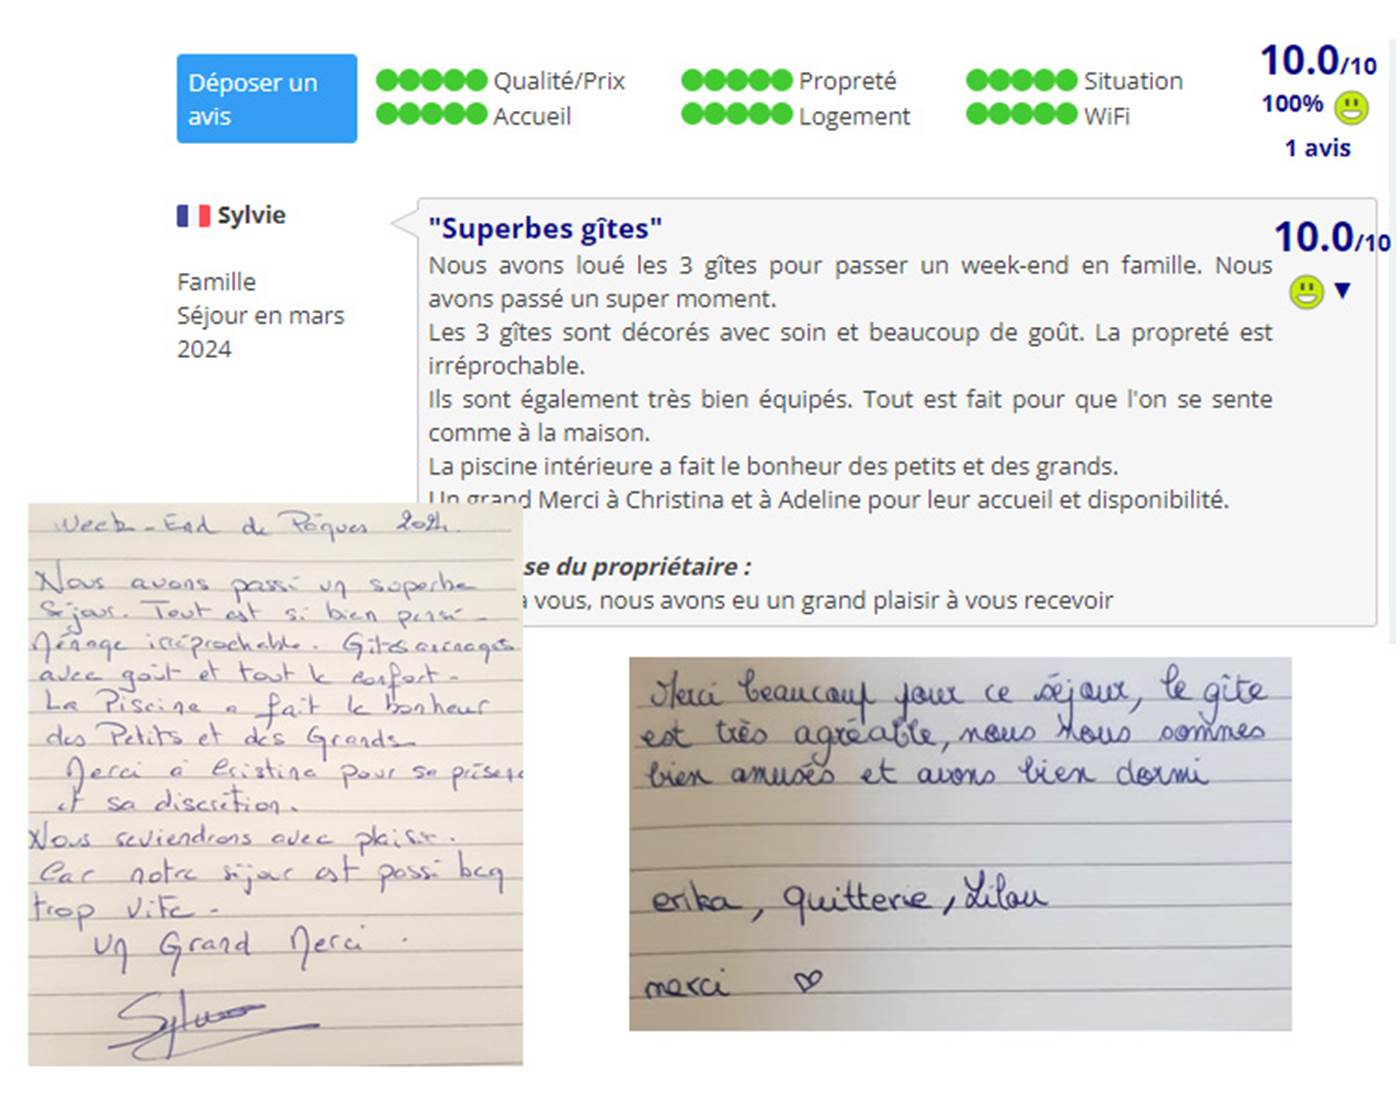 Déposer un
avis
Qualité/Prix
Propreté
Situation
Accueil
Logement
WiFi
10.0/10
100%
1 avis
Sylvie
Famille
Séjour en mars
2024
"Superbes gîtes"
10.0/10
Nous avons loué les 3 gîtes pour passer un week-end en famille. Nous
avons passé un super moment.
Les 3 gîtes sont décorés avec soin et beaucoup de goût. La propreté est
irréprochable.
Ils sont également très bien équipés. Tout est fait pour que l'on se sente
comme à la maison.
La piscine intérieure a fait le bonheur des petits et des grands.
Un grand Merci à Christina et à Adeline pour leur accueil et disponibilité.
se du propriétaire :
à vous, nous avons eu un grand plaisir à vous recevoir
Week-End de Pâques 2024.
Nous avons passé un superbe
Séjour. Tout est si bien pensé.
Ménage irréprochable. Gites
avec goût et tout le confort.
La Piscine a fait le bonheur
des Petits et des Grands
Merci à Cristina pour sa
et sa discrétion.
Nous reviendrons avec plaisir.
Car notre séjour est passé bcq
trop vite.
un Grand Merci.
Merci beaucoup pour ce séjour, le gîte
est très agréable, nous nous sommes
bien amusés et avons bien dormi
erika, quitterie, Lilou
merci ♡